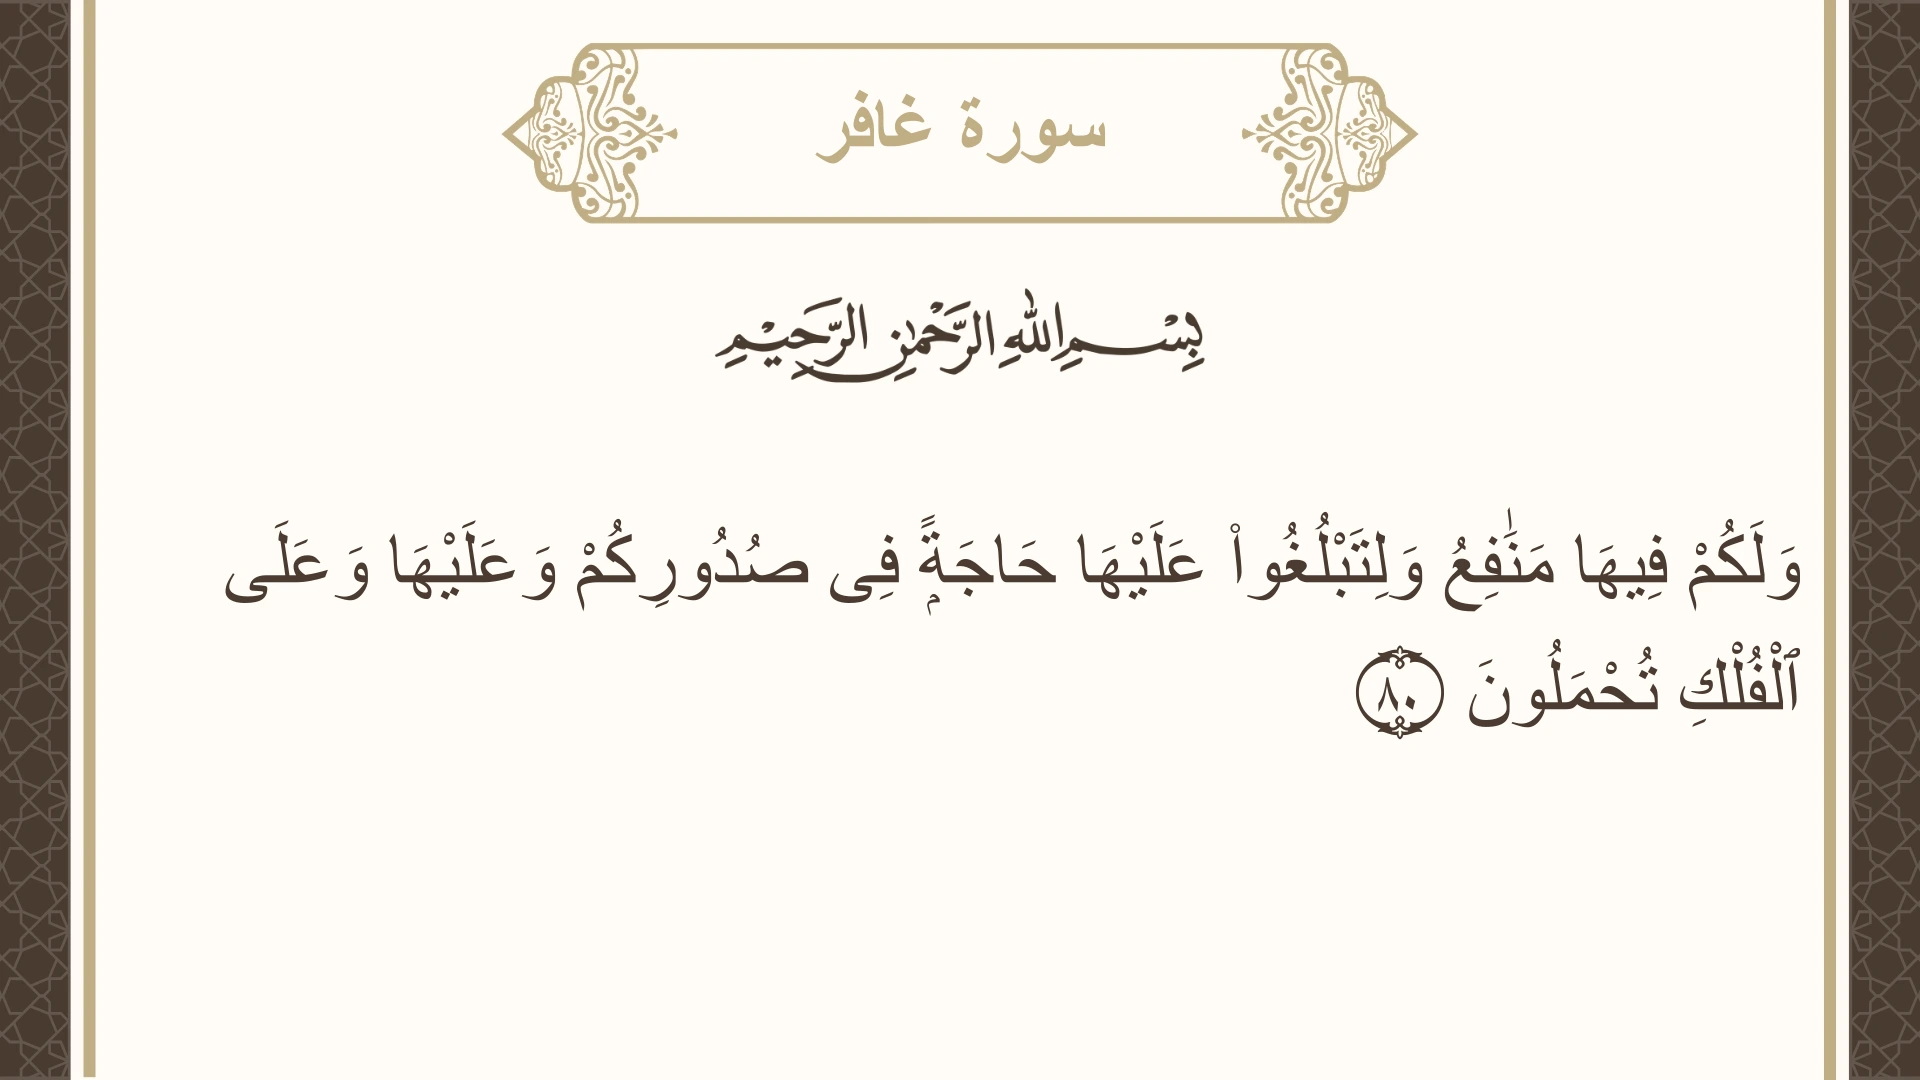 سورة غافر
بِسْمِ اللهِ الرَّحْمٰنِ الرَّحِيْمِ
وَلَكُمْ فِيهَا مَنَـٰفِعُ وَلِتَبْلُغُوا۟ عَلَيْهَا حَاجَةًۭ فِى صُدُورِكُمْ وَعَلَيْهَا وَعَلَى
ٱلْفُلْكِ تُحْمَلُونَ ٨٠